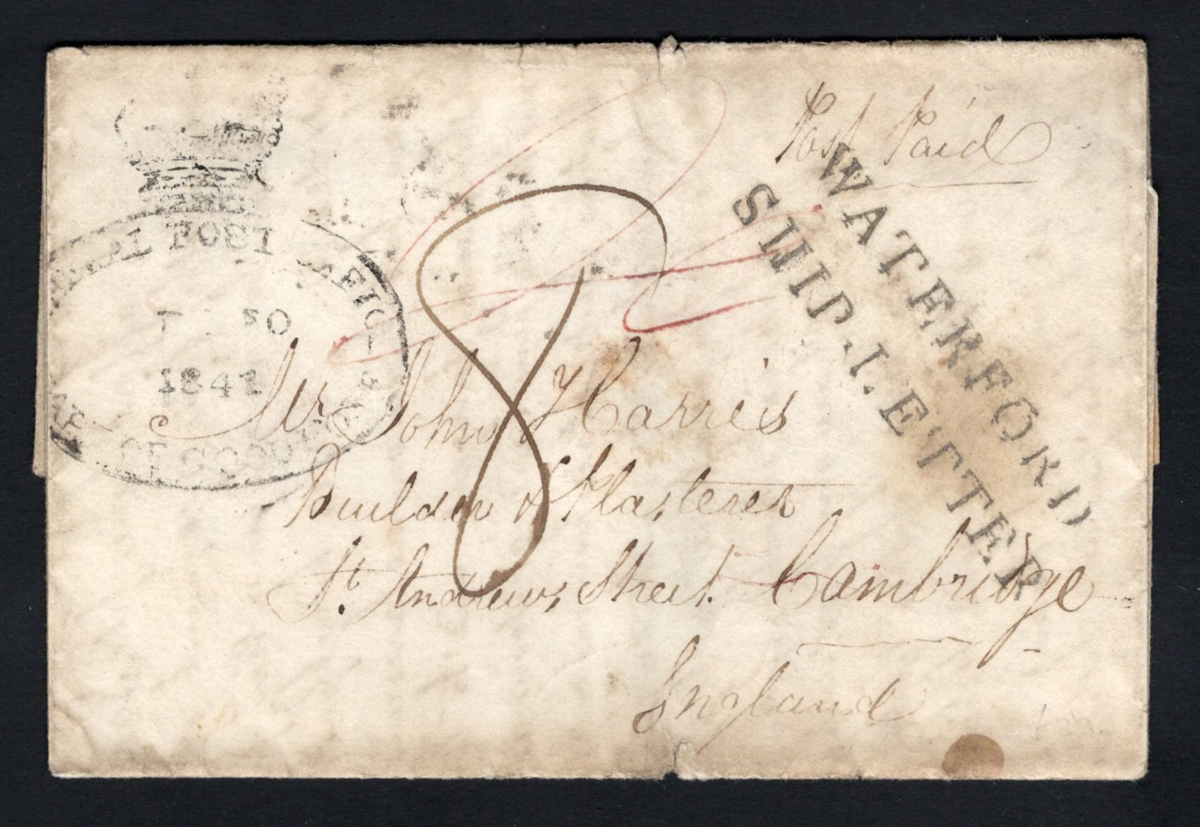 Post Paid
WATERFORD
SHIP LETTER
POST OFFIC
30
1841
OF GOOD
8
Mr John Harris
Builder & Plasterer
St. Andrews Street Cambridge
England